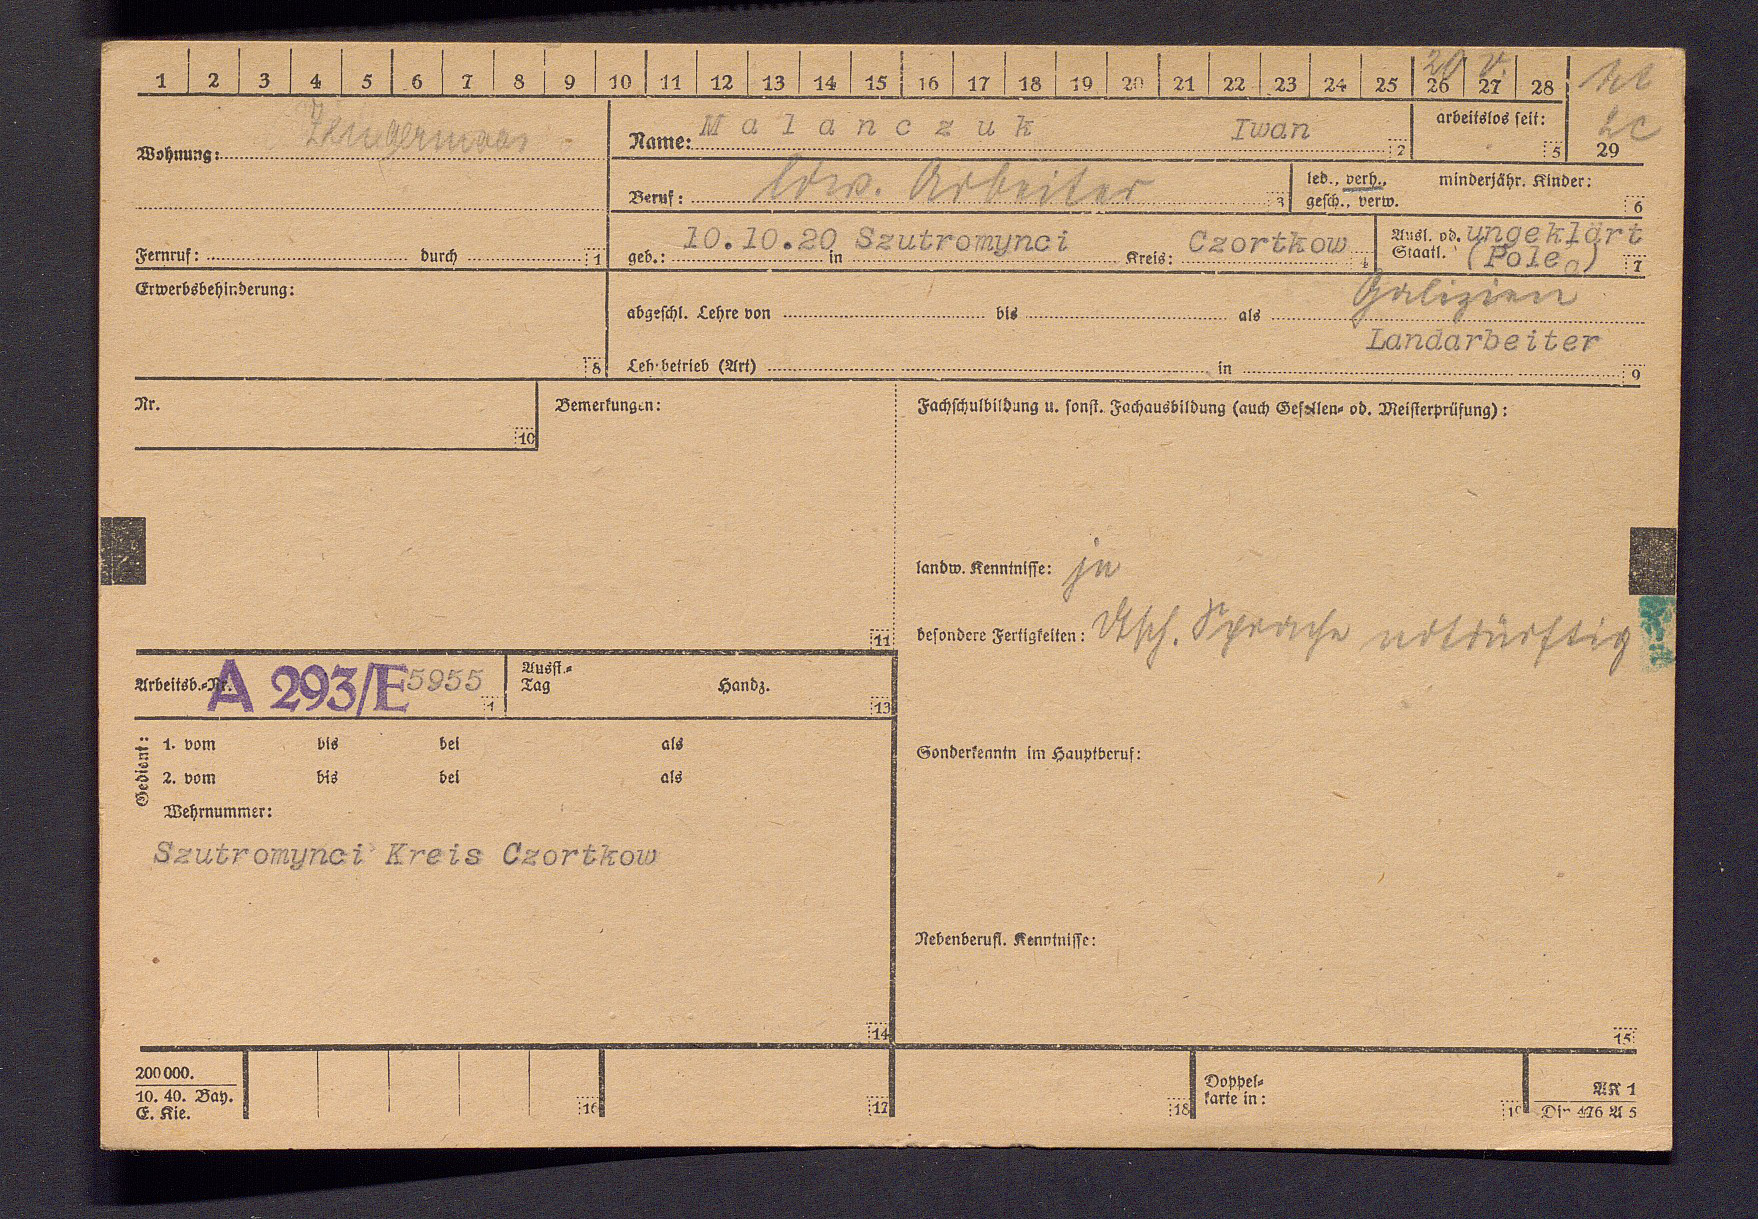 1 2 3 4 5 6 7 8 9 10 11 12 13 14 15 16 17 18 19 20 21 22 23 24 25 26 27 28
20 V.
29
Wohnung:
Name: Malanczuk Iwan 2
arbeitslos seit: 5
Beruf: ldw. Arbeiter 3
led., verh., gesch., verw.
minderjähr. Kinder: 6
Fernruf: durch 1
geb.: 10.10.20 in Szutromynci Kreis: Czortkow 4
Ausl. od. Staatl. ungeklärt (Pole) 7
Galizien
Erwerbsbehinderung: 8
abgeschl. Lehre von bis als
Landarbeiter
Lehrbetrieb (Art) in 9
Nr. 10
Bemerkungen: 11
Fachschulbildung u. sonst. Fachausbildung (auch Gesellen- od. Meisterprüfung):
landw. Kenntnisse: ja
besondere Fertigkeiten: dtsch. Sprache notdürftig
Arbeitsb.-Nr. A 293/E 5955
Ausst.-Tag Handz. 13
Gedient:
1. vom bis bei als
2. vom bis bei als
Wehrnummer:
Szutromynci Kreis Czortkow
14
Sonderkenntn im Hauptberuf:
Nebenberufl. Kenntnisse:
15
200 000.
10. 40. Bay.
E. Kie.
16 17 18
Doppelkarte in: 19
AK 1
Din 476 A 5